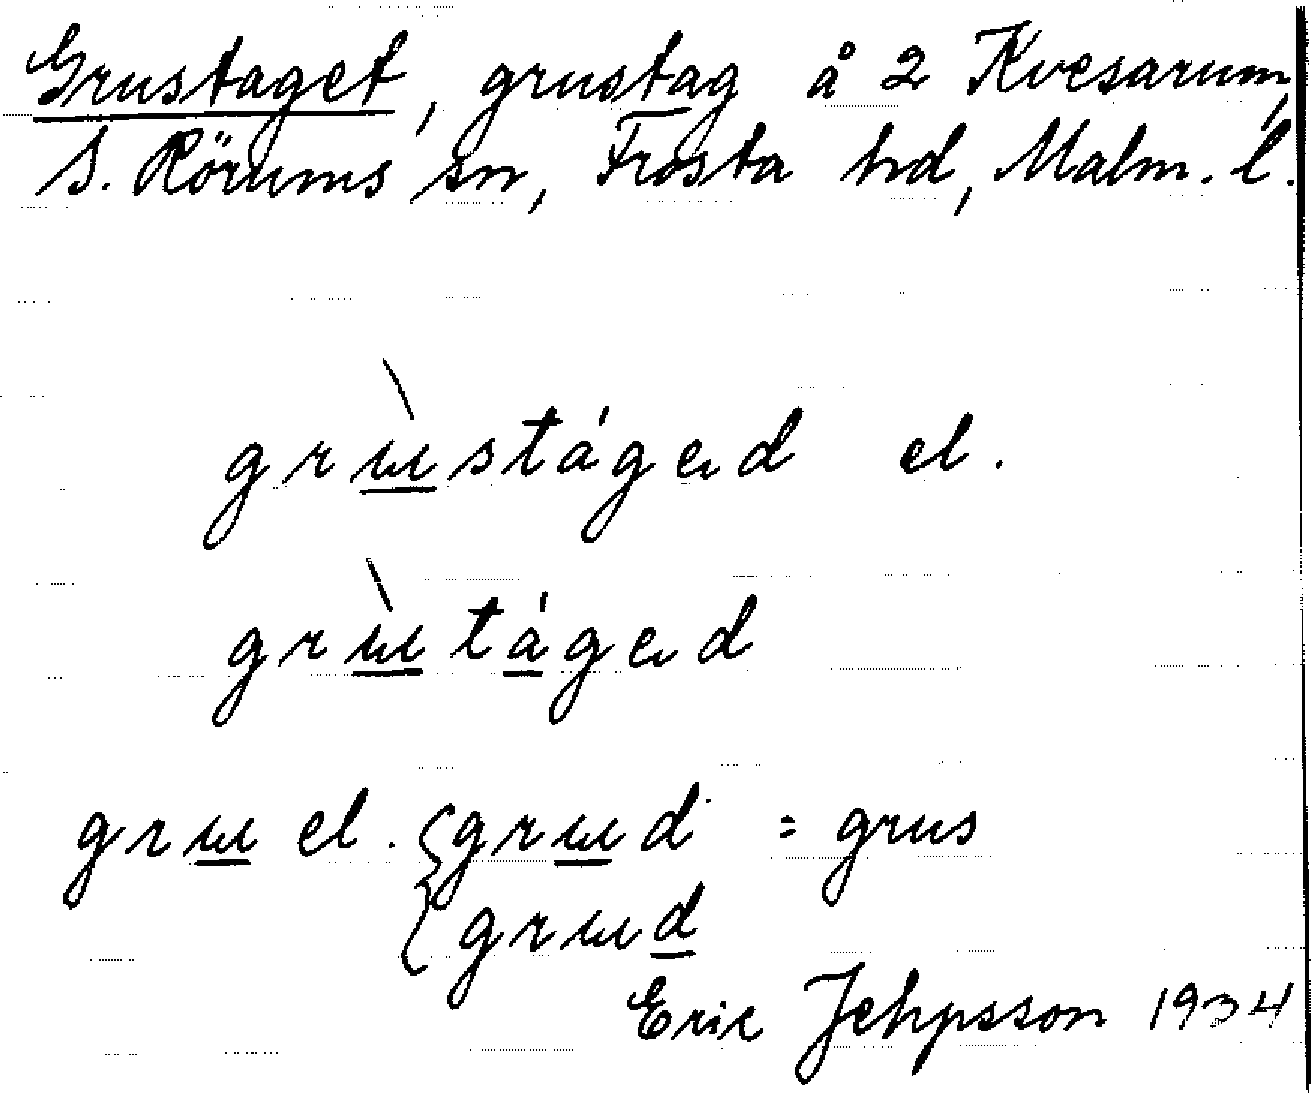 Grustaget, grustag å 2 Kvesarum,
S. Rörums sn, Frosta hd, Malm. l.
grɯ̀stáged el.
grɯ̀táged
grɯ el. {grɯd = grus
{grɯd
Eric Jehpsson 1934